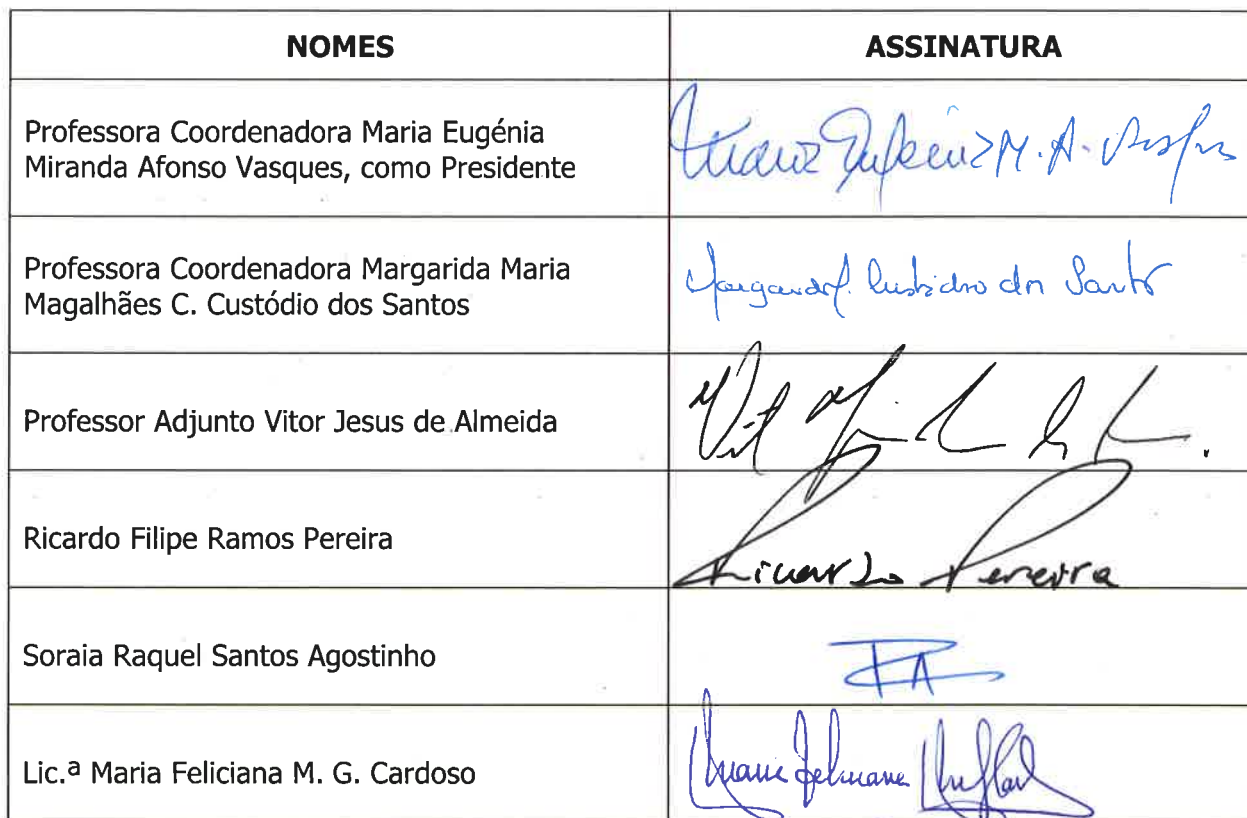 NOMES
ASSINATURA
Professora Coordenadora Maria Eugénia
Miranda Afonso Vasques, como Presidente
Maria Eugénia M. A. Vasques
Professora Coordenadora Margarida Maria
Magalhães C. Custódio dos Santos
Margarida Custódio dos Santos
Professor Adjunto Vitor Jesus de Almeida
Vit
Ricardo Filipe Ramos Pereira
Ricardo Pereira
Soraia Raquel Santos Agostinho
RA
Lic.ª Maria Feliciana M. G. Cardoso
Maria Feliciana